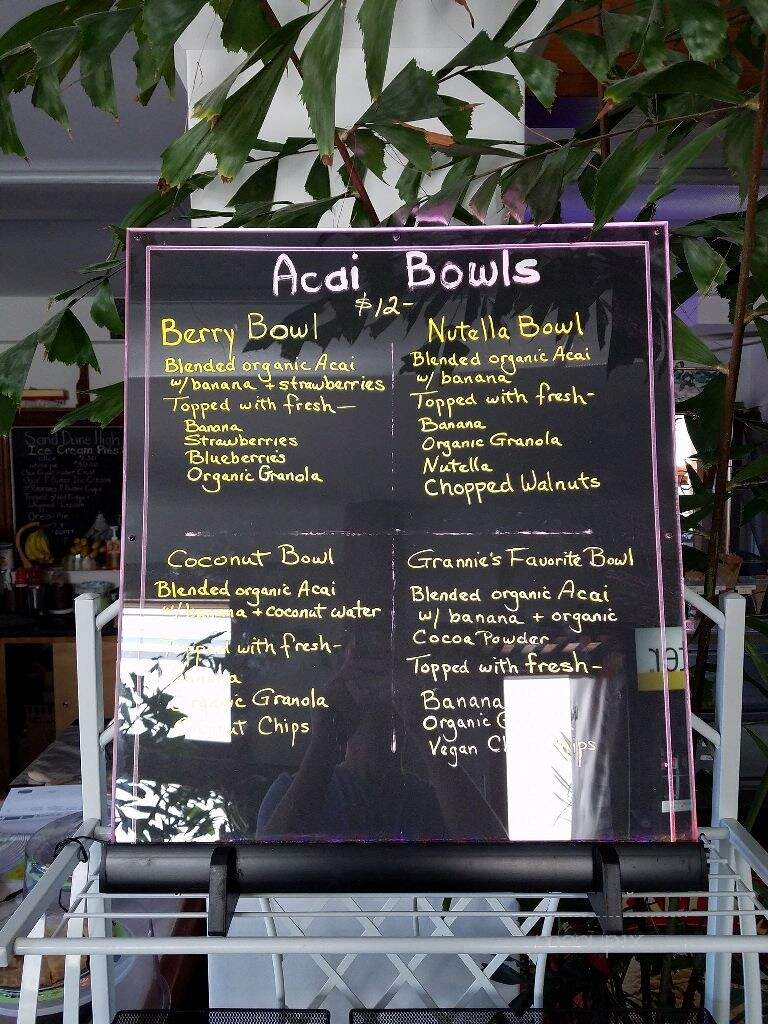 Acai Bowls
$12-
Berry Bowl
Blended organic Acai
w/ banana + strawberries
Topped with fresh—
Banana
Strawberries
Blueberries
Organic Granola
Nutella Bowl
Blended organic Acai
w/ banana
Topped with fresh-
Banana
Organic Granola
Nutella
Chopped Walnuts
Coconut Bowl
Blended organic Acai
w/ banana + coconut water
Topped with fresh-
Banana
Organic Granola
Chips
Grannie's Favorite Bowl
Blended organic Acai
w/ banana + organic
Cocoa Powder
Topped with fresh-
Banana
Organic
Vegan
Sand Dune High
Ice Cream Pies